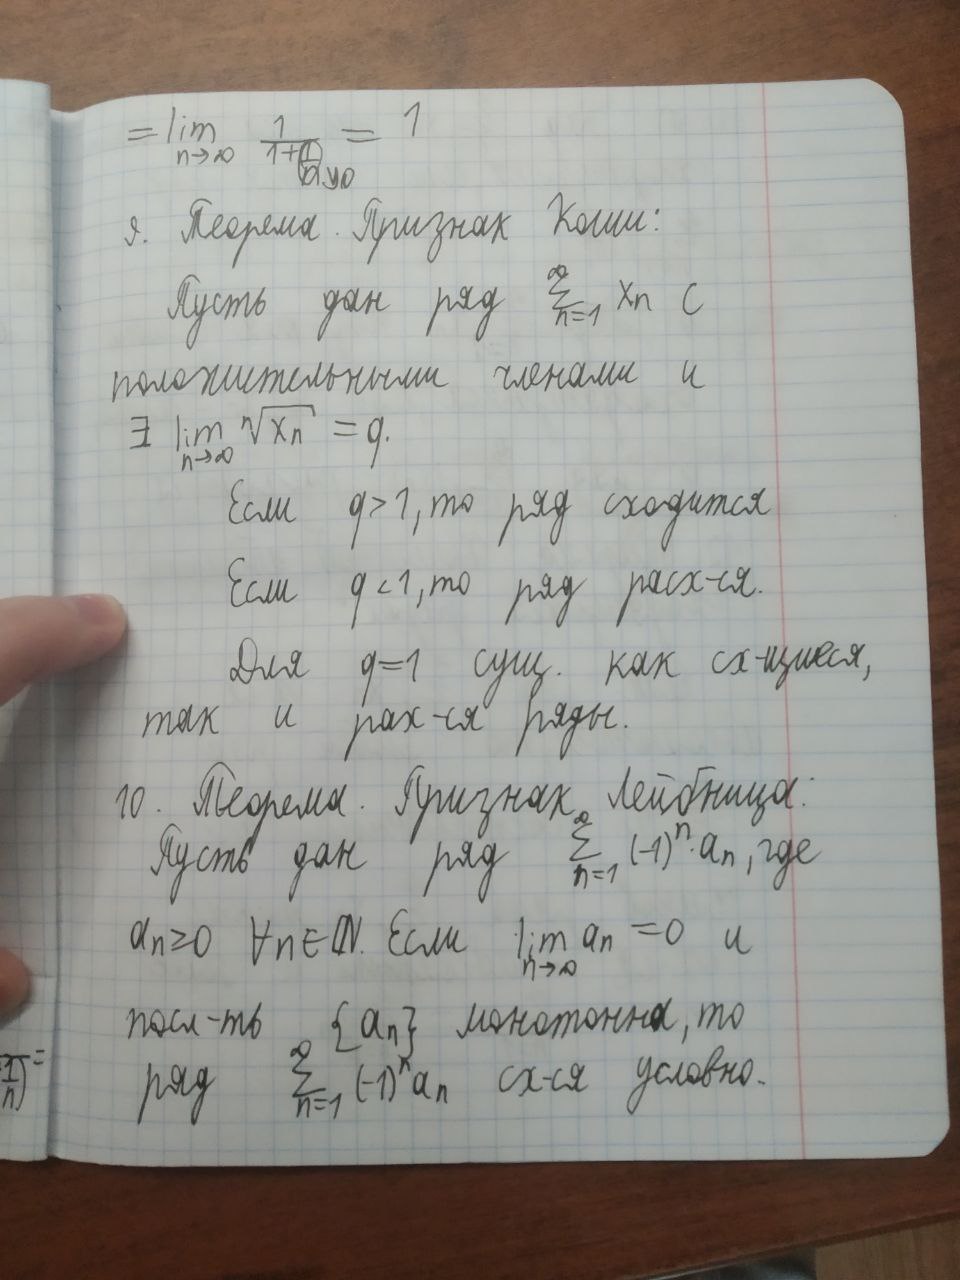 = lim n→∞ 1/(1+(1/n)↘0) = 1
9. Теорема. Признак Коши:
Пусть дан ряд ∑ n=1 ∞ xn с
положительными членами и
∃ lim n→∞ ⁿ√xn = q.
Если q>1, то ряд сходится
Если q<1, то ряд расх-ся.
Для q=1 сущ. как сх-щиеся,
так и рах-ся ряды.
10. Теорема. Признак Лейбница:
Пусть дан ряд ∑ n=1 ∞ (-1)ⁿ·an, где
an≥0 ∀n∈ℕ. Если lim n→∞ an =0 и
посл-ть {an} монотонна, то
ряд ∑ n=1 ∞ (-1)ⁿan сх-ся условно.